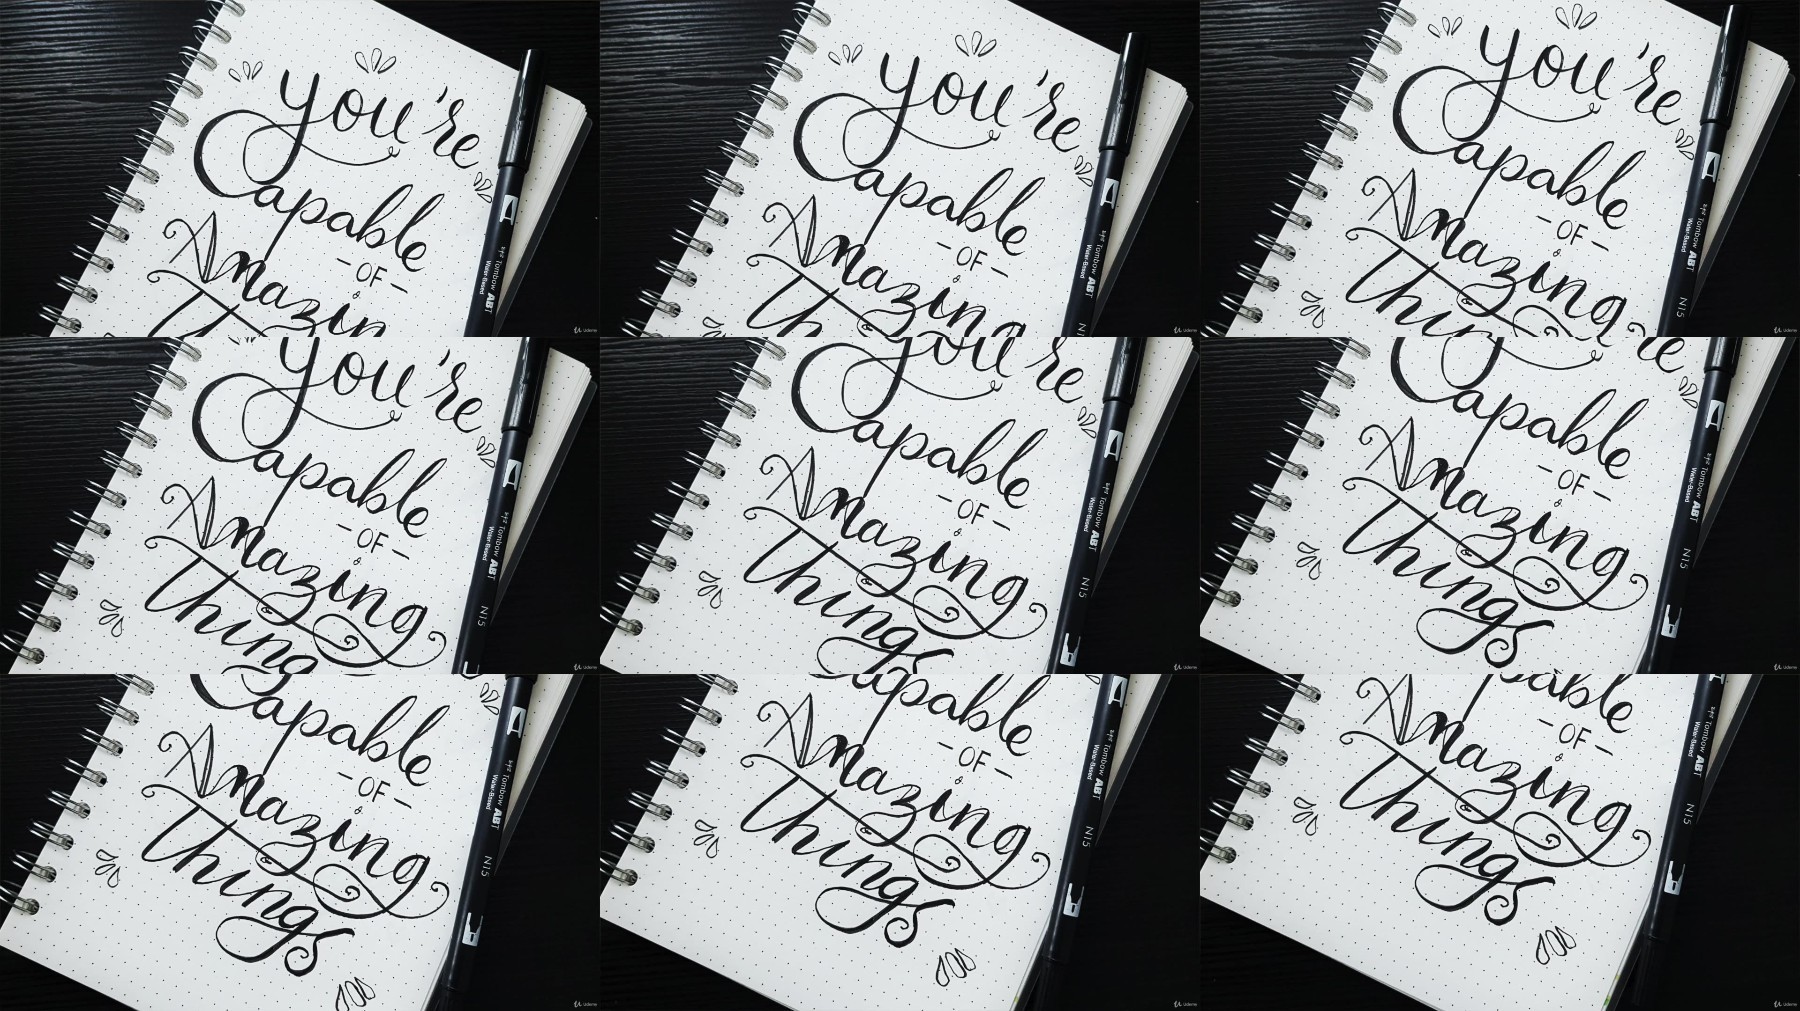 You're
Capable
- OF -
Amazin
Tombow ABT
Water-Based
Udemy
You're
Capable
- OF -
Amazing
Th
Tombow ABT
Water-Based
Udemy
You're
Capable
- OF -
Amazing
Thin
Tombow ABT
Water-Based
N15
Udemy
You're
Capable
- OF -
Amazing
Thing
Tombow ABT
Water-Based
N15
Udemy
You're
Capable
- OF -
Amazing
Things
Tombow ABT
Water-Based
N15
Udemy
Capable
- OF -
Amazing
Things
Tombow ABT
Water-Based
N15
Udemy
Capable
- OF -
Amazing
Things
Tombow ABT
Water-Based
N15
Udemy
Capable
- OF -
Amazing
Things
Tombow ABT
Water-Based
N15
Udemy
- OF -
Amazing
Things
Tombow ABT
Water-Based
N15
Udemy